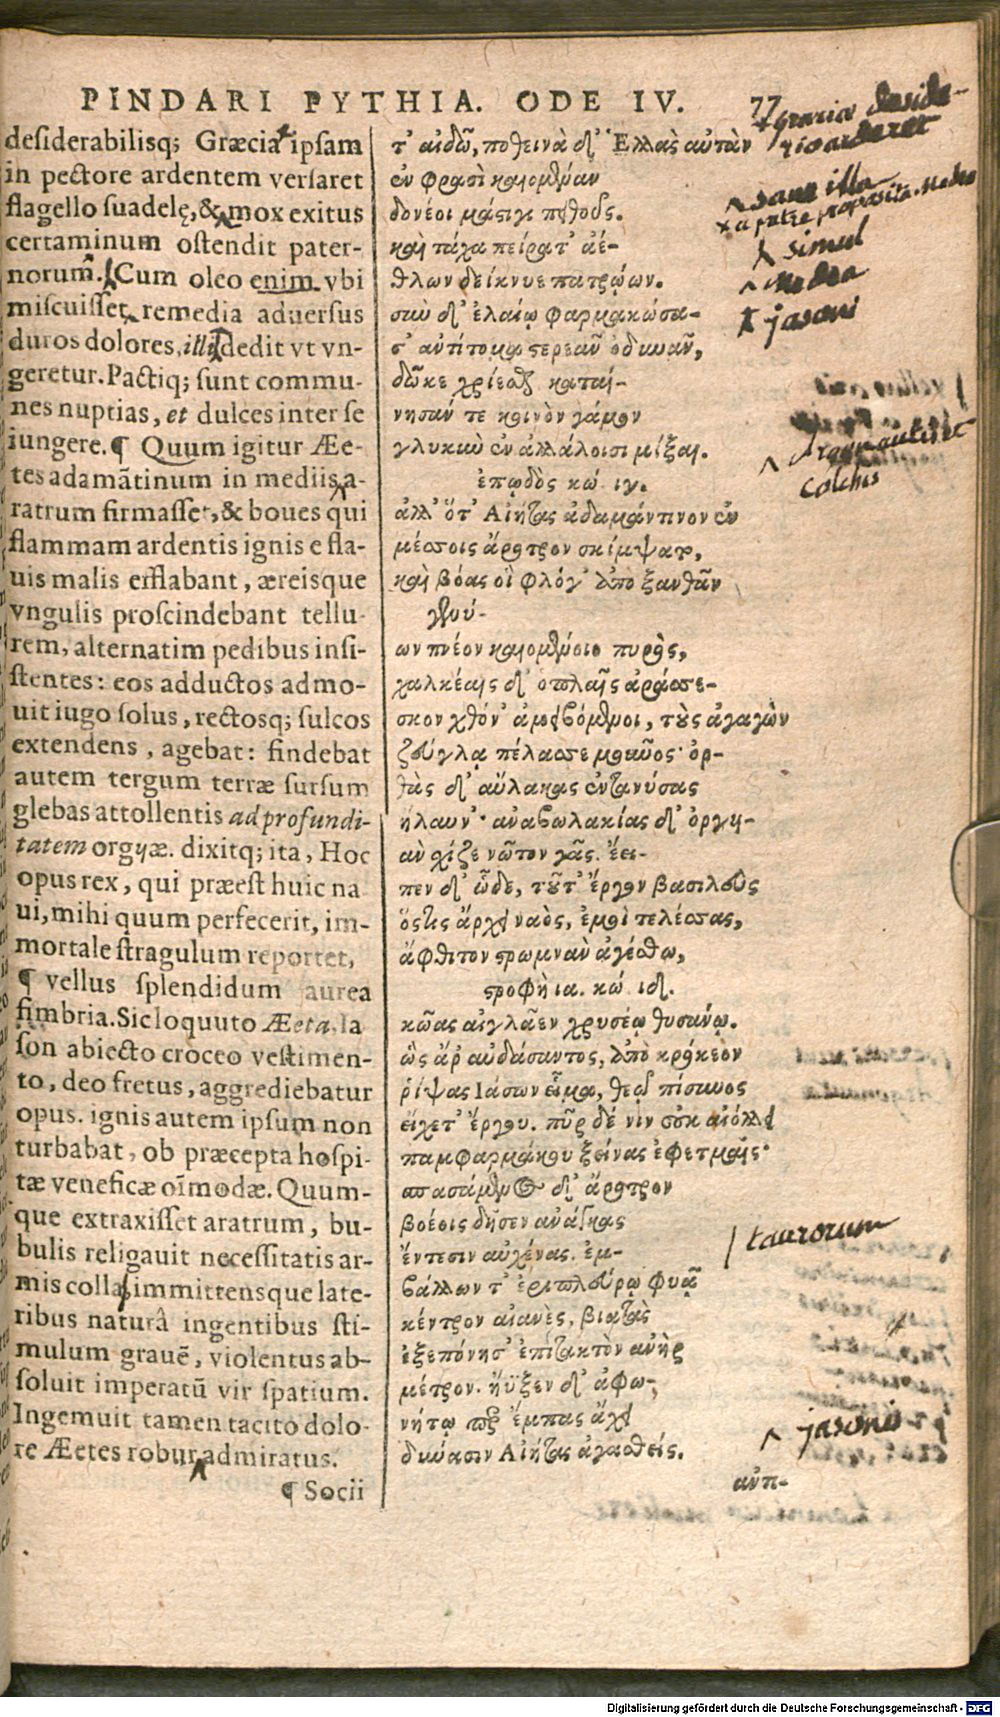 PINDARI PYTHIA. ODE IV. 77
desiderabilisq; Græcia ipsam
in pectore ardentem versaret
flagello suadelę, & mox exitus
certaminum ostendit pater-
norum. Cum oleo enim vbi
miscuisset remedia aduersus
duros dolores, illi dedit vt vn-
geretur. Pactiq; sunt commu-
nes nuptias, et dulces inter se
iungere. ¶ Quum igitur Æe-
tes adamãtinum in mediis a-
ratrum firmasset, & boues qui
flammam ardentis ignis e fla-
uis malis efflabant, æreisque
vngulis proscindebant tellu-
rem, alternatim pedibus insi-
stentes: eos adductos admo-
uit iugo solus, rectosq; sulcos
extendens, agebat: findebat
autem tergum terræ sursum
glebas attollentis ad profundi-
tatem orgyæ. dixitq; ita, Hoc
opus rex, qui præest huic na
ui, mihi quum perfecerit, im-
mortale stragulum reportet,
¶ vellus splendidum aurea
fimbria. Sic loquuto Æeta, Ia
son abiecto croceo vestimen-
to, deo fretus, aggrediebatur
opus. ignis autem ipsum non
turbabat, ob præcepta hospi-
tæ veneficæ oĩmodæ. Quum-
que extraxisset aratrum, bu-
bulis religauit necessitatis ar-
mis colla, immittensque late-
ribus naturâ ingentibus sti-
mulum grauẽ, violentus ab-
soluit imperatũ vir spatium.
Ingemuit tamen tacito dolo-
re Æetes robur admiratus.
¶ Socii
τ' αἰδῶ, ποθεινὰ δ' Ἑλλὰς αὐτὰν
ἐν φρασὶ καιομέναν
δονέοι μάστιγι πειθοῦς.
καὶ τάχα πείρατ' ἀέ-
θλων δείκνυε πατρώων.
σὺν δ' ἐλαίῳ φαρμακώσα-
σ' αὐτίτομα στερεᾶν ὀδυνᾶν,
δῶκε χρίεσθαι καταί-
νησάν τε κοινὸν γάμον
γλυκὺν ἐν ἀλλάλοισι μίξαι.
ἐπῳδὸς κώ. ιγ.
ἀλλ' ὅτ' Αἰήτας ἀδαμάντινον ἐν
μέσσοις ἄροτρον σκίμψατο,
καὶ βόας οἳ φλόγ' ἀπὸ ξανθᾶν
γενύ-
ων πνέον καιομένοιο πυρὸς,
χαλκέαις δ' ὁπλαῖς ἀράσσε-
σκον χθόν' ἀμειβόμενοι, τοὺς ἀγαγὼν
ζεύγλᾳ πέλασσε μοῦνος· ὀρ-
θὰς δ' αὔλακας ἐντανύσας
ἤλαυν'· ἀναβωλακίας δ' ὀργυι-
ὰν σχίζε νῶτον γᾶς. ἔει-
πεν δ' ὧδε, τοῦτ' ἔργον βασιλεὺς
ὅστις ἄρχει ναὸς, ἐμοὶ τελέσσας,
ἄφθιτον στρωμνὰν ἀγέσθω,
στροφὴ ια. κώ ιδ.
κῶας αἰγλᾶεν χρυσέῳ θυσάνῳ.
ὣς ἄρ' αὐδάσαντος, ἀπὸ κρόκεον
ῥίψας Ἰάσων εἷμα, θεῷ πίσυνος
εἴχετ' ἔργου. πῦρ δέ νιν οὐκ αἰόλλει
παμφαρμάκου ξείνας ἐφετμαῖς·
σπασάμενος δ' ἄροτρον
βοέοις δῆσεν ἀνάγκας
ἔντεσιν αὐχένας. ἐμ-
βάλλων τ' ἐριπλεύρῳ φυᾷ
κέντρον αἰανὲς, βιατὰς
ἐξεπόνησ' ἐπίτακτὸν ἀνὴρ
μέτρον. ἤϋξεν δ' ἀφω-
νήτῳ περ ἔμπας ἄχει
δύνασιν Αἰήτας ἀγασθείς.
αὐτι-
Graecia deside-
sane illa
simul
Medea
jasoni
Argonautis et
Colchis
taurorum
jasonis
Digitalisierung gefördert durch die Deutsche Forschungsgemeinschaft - DFG